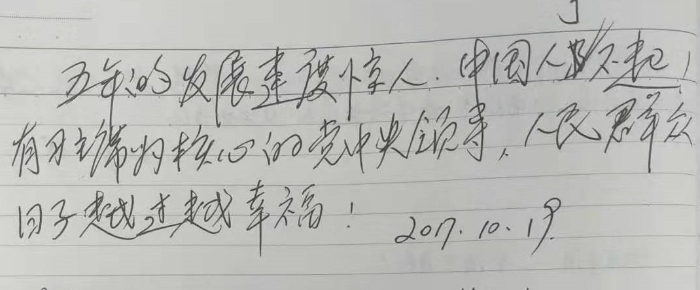 五年的发展速度惊人.中国人民了不起!
有习主席为核心的党中央领导,人民群众
日子越过越幸福! 2017.10.19